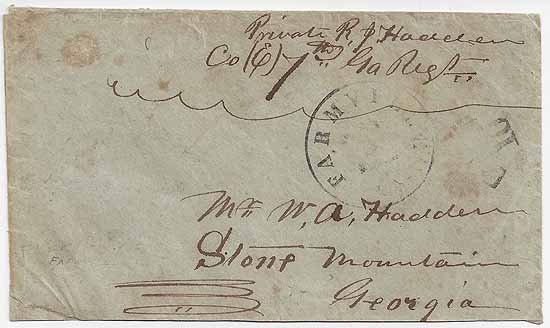 Private R J Hadden
Co (E) 7th Ga Regt
FARMVI
10
Mr W, A, Hadden
Stone Mountain
Georgia